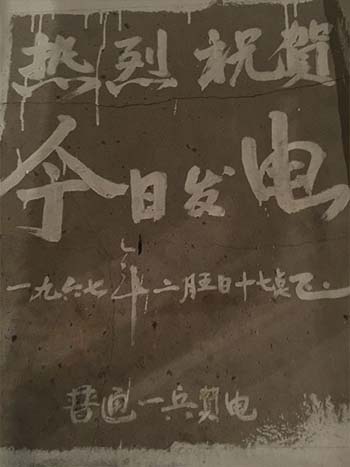 热烈祝贺
今日发电
一九六七年二月五日十七点
普通一兵贺电